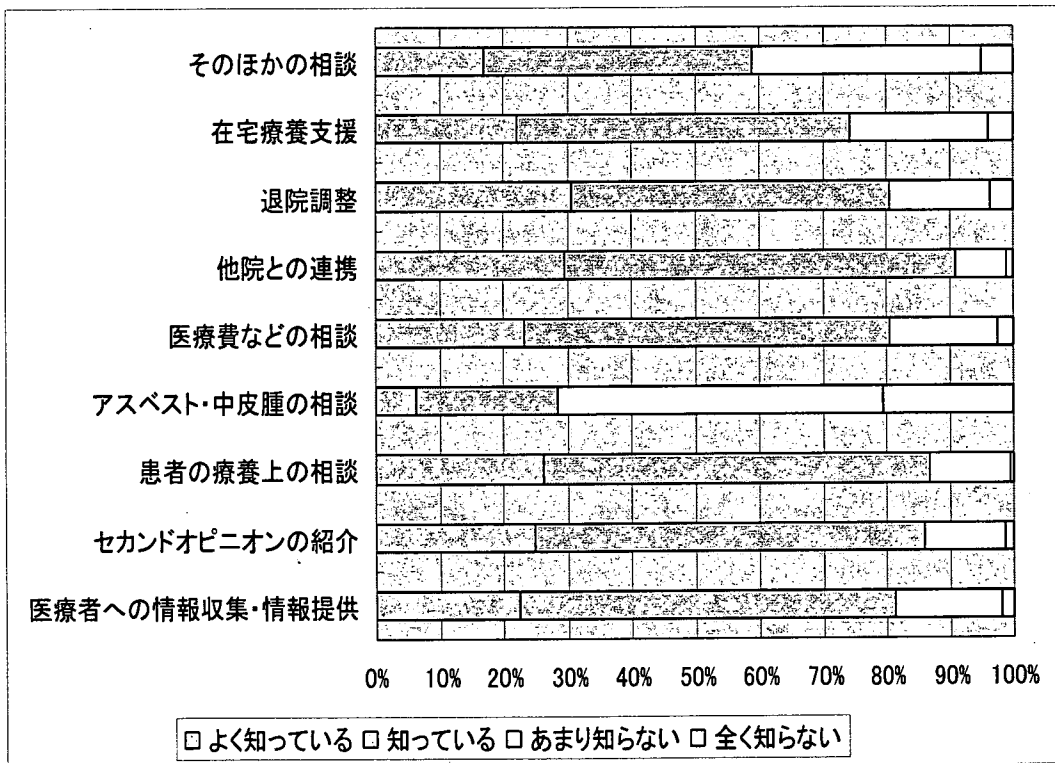 そのほかの相談
在宅療養支援
退院調整
他院との連携
医療費などの相談
アスベスト・中皮腫の相談
患者の療養上の相談
セカンドオピニオンの紹介
医療者への情報収集・情報提供
0% 10% 20% 30% 40% 50% 60% 70% 80% 90% 100%
よく知っている 知っている あまり知らない 全く知らない